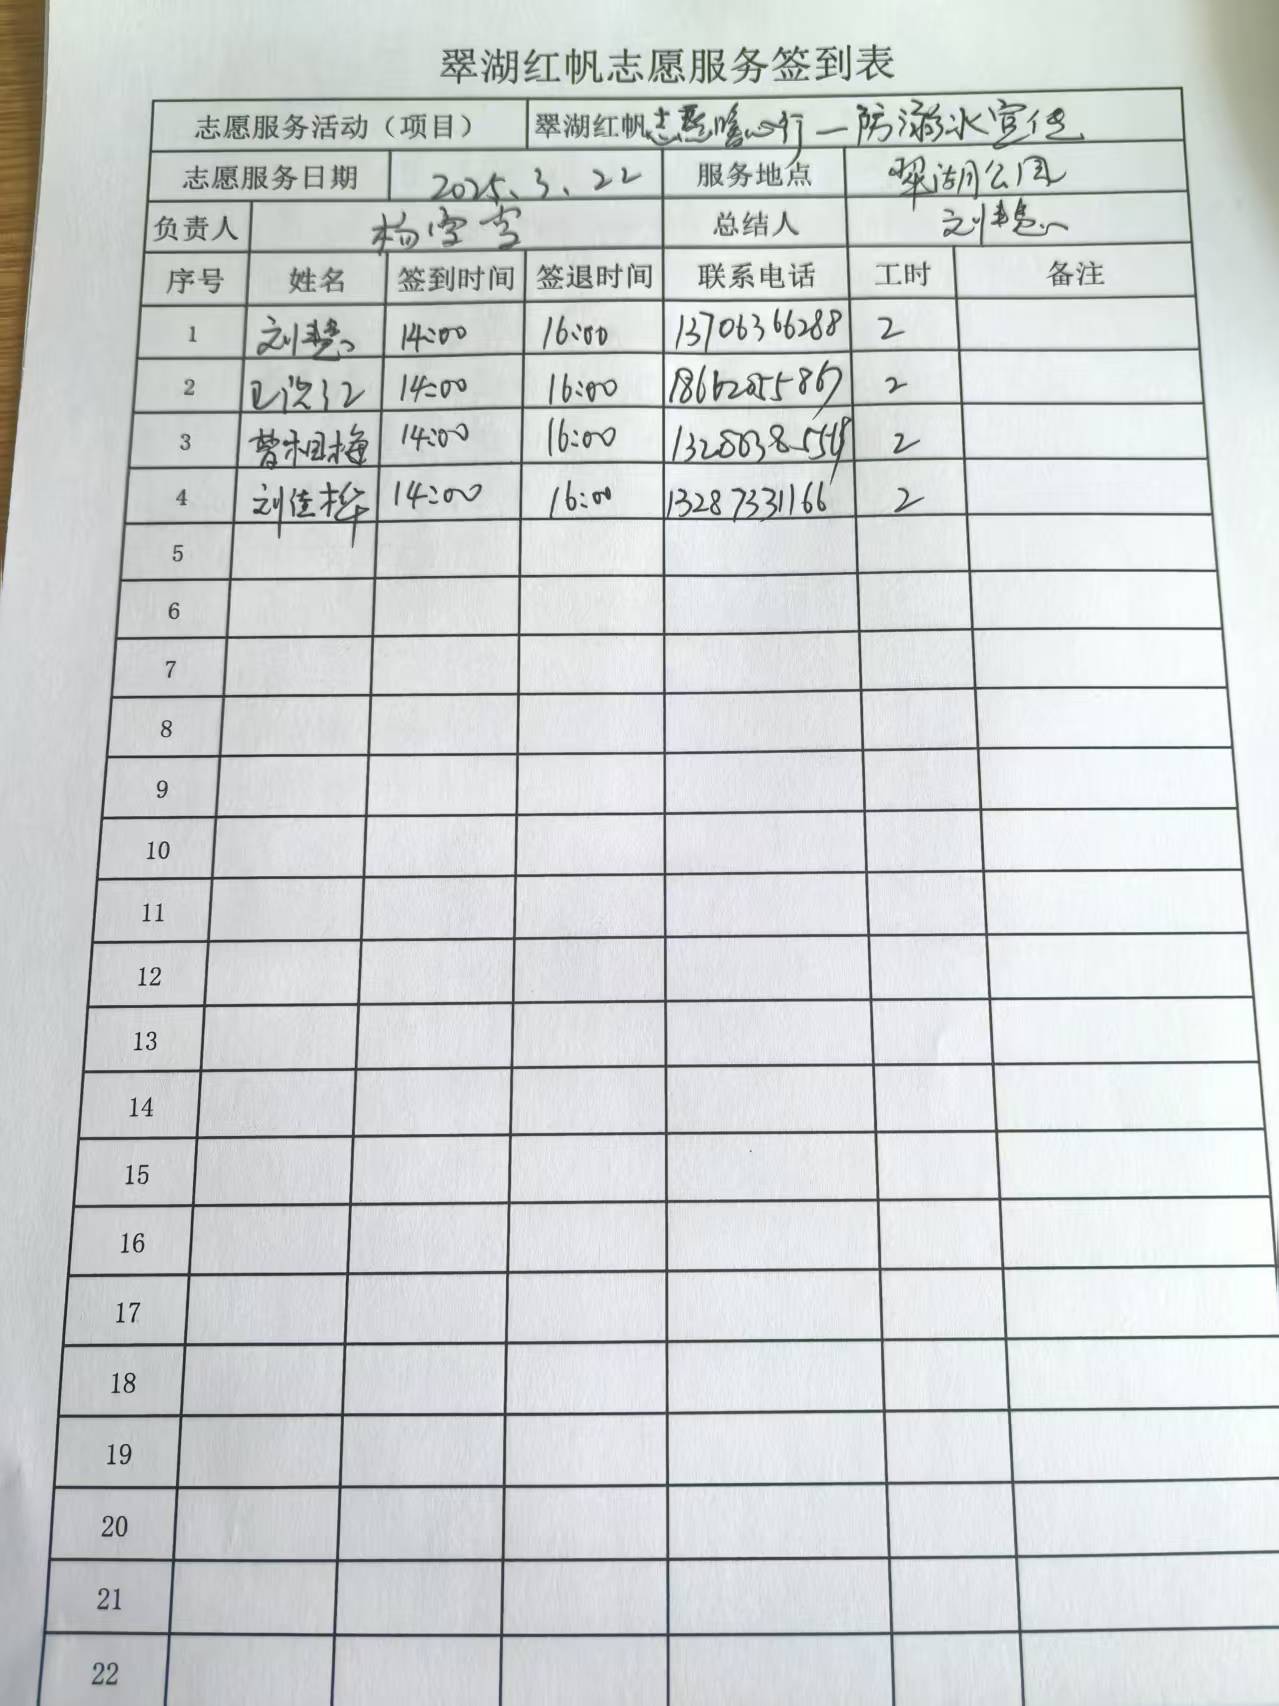 翠湖红帆志愿服务签到表
志愿服务活动（项目） 翠湖红帆志愿暖心行一防溺水宣传
志愿服务日期 2025.3.22 服务地点 翠湖公园
负责人 杨雪雪 总结人 刘慧
序号 姓名 签到时间 签退时间 联系电话 工时 备注
1 刘慧 14:00 16:00 13706366288 2
2 14:00 16:00 2
3 曹相梅 14:00 16:00 2
4 刘佳桦 14:00 16:00 13287331166 2
5
6
7
8
9
10
11
12
13
14
15
16
17
18
19
20
21
22